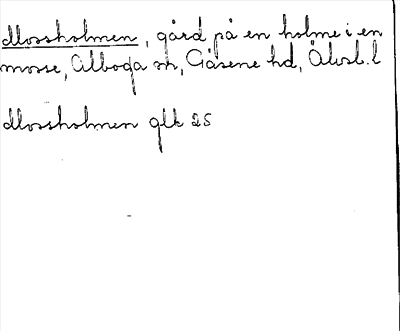 Mossholmen, gård på en holme i en
mosse, Alboga sn, Gäsene hd, Älvsb. l
Mossholmen glk 25